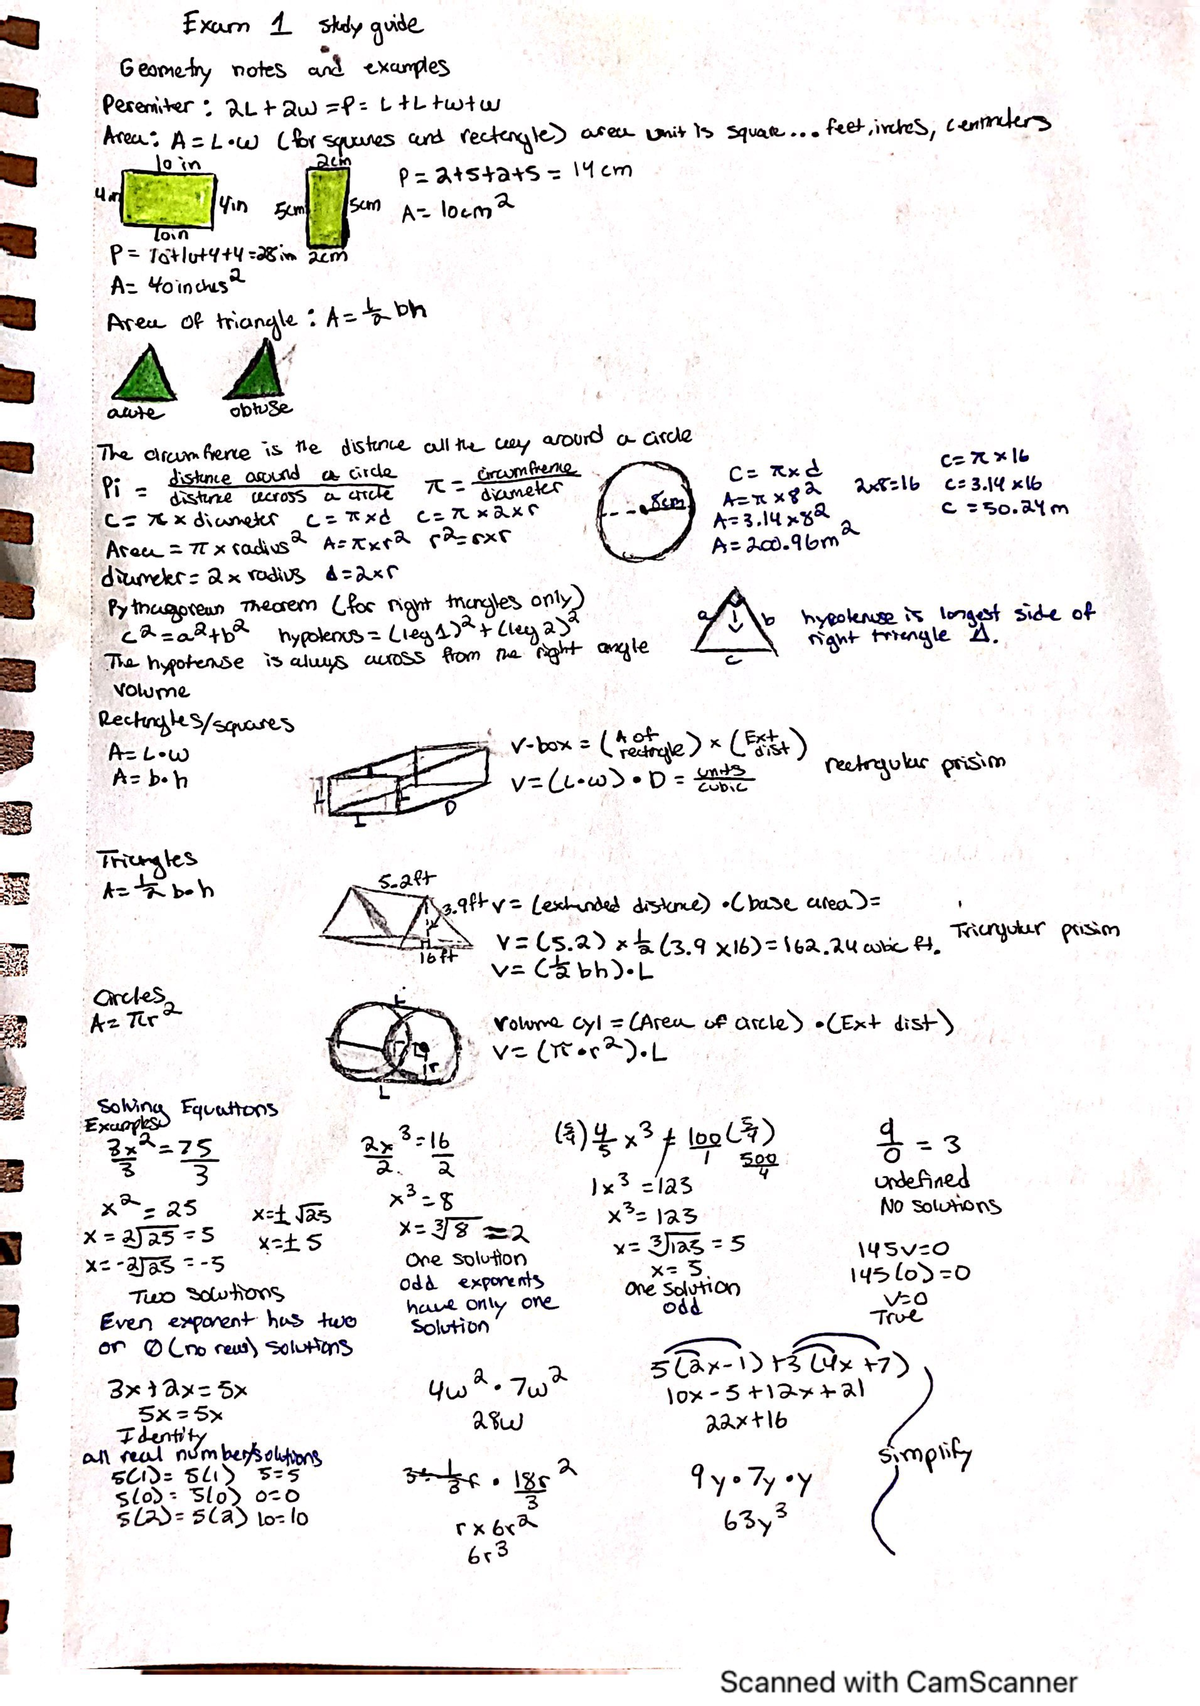 Exam 1 study guide
Geometry notes and examples
Peremiter: 2L + 2w = P = L+L+w+w
Area: A = L•w (for squares and rectangle) area unit is square... feet, inches, centimeters
10 in
4in
4in
10in
2cm
5cm
5cm
2cm
P = 2+5+2+5 = 14 cm
A = 10cm²
P = 10+10+4+4 = 28 in
A = 40 inches²
Area of triangle: A = ½ bh
acute
obtuse
The circumfrence is the distance all the way around a circle
Pi = distance around a circle / distance across a circle π = circumfrence / diameter
C = π x diameter C = π x d C = π x 2 x r
Area = π x radius² A = π x r² r² = r x r
diameter = 2 x radius d = 2 x r
8cm
C = π x d
A = π x 8²
A = 3.14 x 8²
A = 200.96m²
2x8=16
C = π x 16
C = 3.14 x 16
C = 50.24 m
Pythagorean Theorem (for right triangles only)
c² = a² + b² hypotenus = (leg 1)² + (leg 2)²
The hypotenuse is always across from the right angle
a
b
c
hypotenuse is longest side of
right triangle Δ.
Volume
Rectangles/squares
A = L•w
A = b•h
H
L
D
V-box = (A of rectangle) x (Ext dist)
V = (L•w) • D = units / cubic
rectangular prisim
Triangles
A = ½ b•h
5.2ft
3.9ft
16ft
V = (extended distance) • (base area) =
V = (5.2) x ½ (3.9 x 16) = 162.24 cubic ft.
V = (½ bh) • L
Triangular prisim
Circles
A = πr²
L
r
L
Volume cyl = (Area of circle) • (Ext dist)
V = (π•r²) • L
Solving Equations
Examples
3x²/3 = 75/3
x² = 25
x = 2√25 = 5
x = -2√25 = -5
x = ± √25
x = ± 5
Two solutions
Even exponent has two
or Ø (no real) solutions
2x³/2 = 16/2
x³ = 8
x = ³√8 = 2
One solution
odd exponents
have only one
solution
(5/4) 4/5 x³ = 100/1 (5/4)
500/4
1x³ = 123
x³ = 123
x = ³√125 = 5
x = 5
one solution
odd
9/0 = 3
undefined
No solutions
145v = 0
145(0) = 0
v = 0
True
3x + 2x = 5x
5x = 5x
Identity
all real number/solutions
5(1) = 5(1) 5=5
5(0) = 5(0) 0=0
5(2) = 5(2) 10=10
4w² • 7w²
28w
r • 18r²/3
r x 6r²
6r³
5(2x-1) + 3(4x+7)
10x - 5 + 12x + 21
22x + 16
9y • 7y • y
63y³
simplify
Scanned with CamScanner